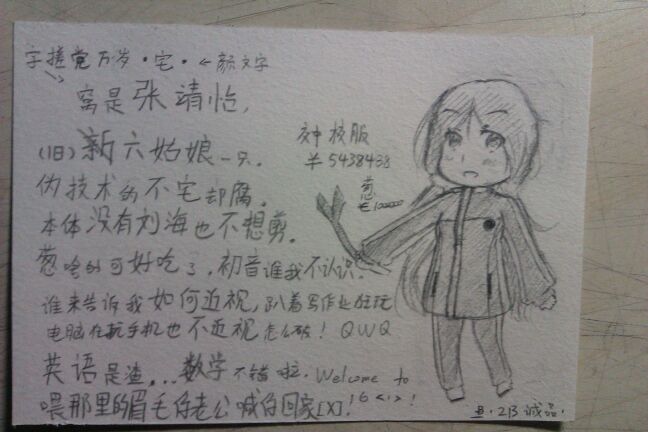 字搓党万岁·宅·←颜文字
窝是张靖怡,
(旧)新六姑娘一只.
伪技术的不宅却腐.
本体没有刘海也不想剪.
葱啥的可好吃了,初音谁我不认识.
谁来告诉我如何近视,趴着写作业狂玩
电脑狂玩手机也不近视怎么破! QWQ
英语是渣...数学不错啦. Welcome to
喂那里的眉毛你老公喊你回家[X]! 6 <·> !
校服
¥5438438
葱
¥100000
B.213诚品.